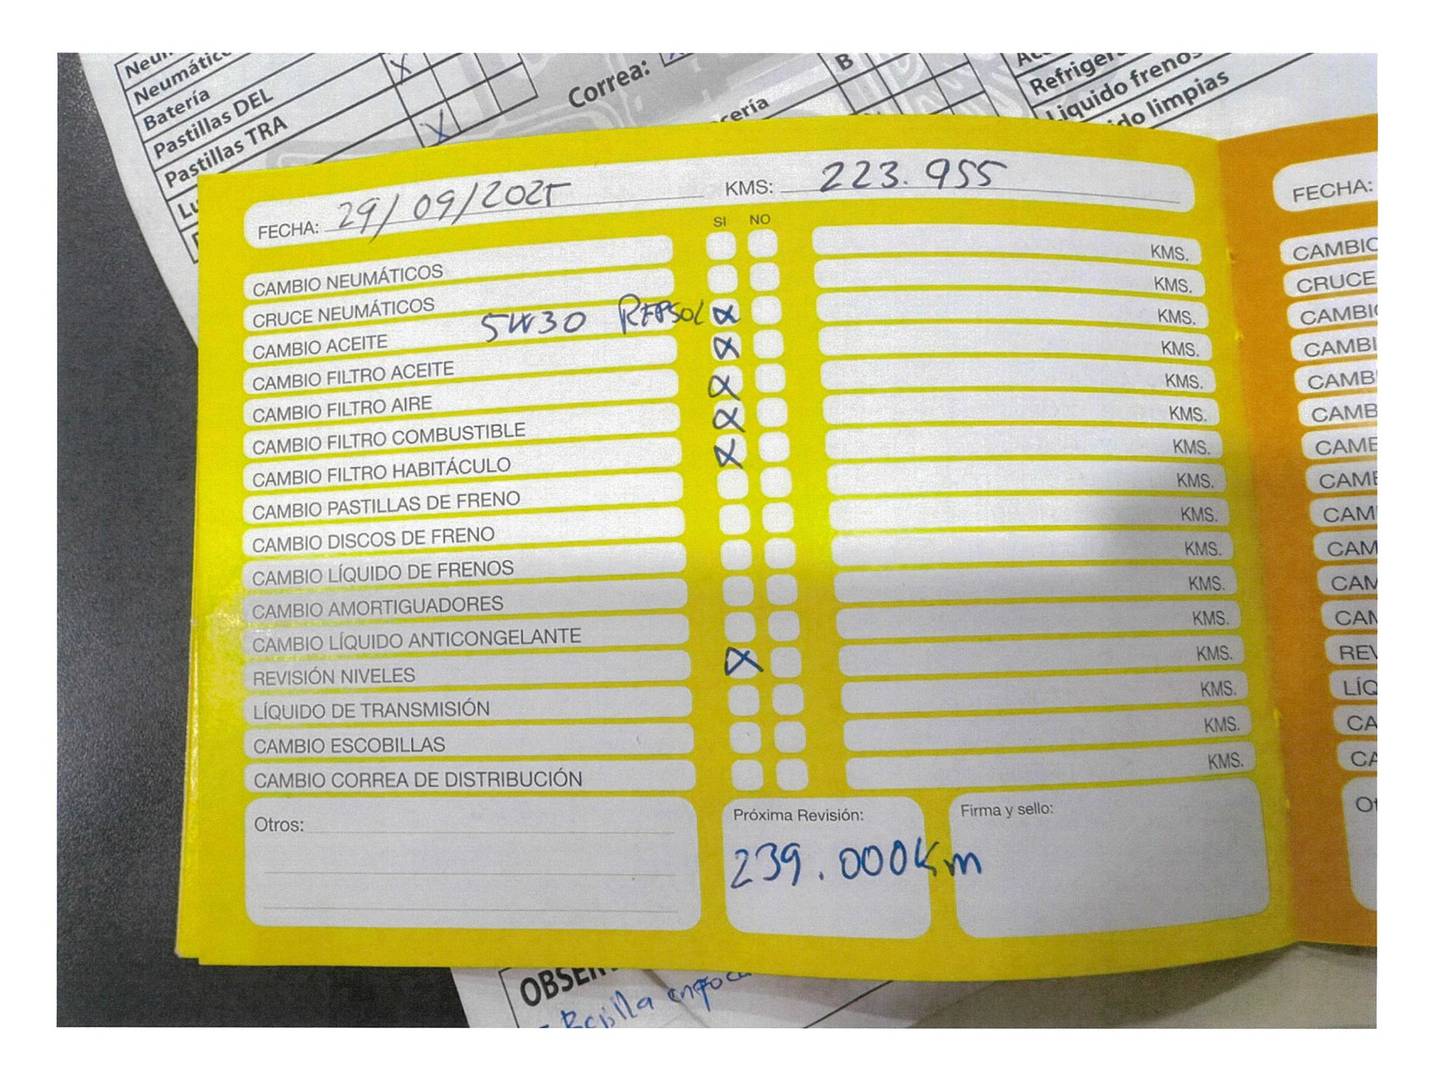 Neumátic
Batería
Pastillas DEL
Pastillas TRA
Correa:
B
Refriger
Liquido frenos
do limpias
FECHA: 29/09/2025 KMS: 223.955
SI NO
CAMBIO NEUMÁTICOS KMS.
CRUCE NEUMÁTICOS KMS.
CAMBIO ACEITE 5W30 REPSOL X KMS.
CAMBIO FILTRO ACEITE X KMS.
CAMBIO FILTRO AIRE X KMS.
CAMBIO FILTRO COMBUSTIBLE X KMS.
CAMBIO FILTRO HABITÁCULO X KMS.
CAMBIO PASTILLAS DE FRENO KMS.
CAMBIO DISCOS DE FRENO KMS.
CAMBIO LÍQUIDO DE FRENOS KMS.
CAMBIO AMORTIGUADORES KMS.
CAMBIO LÍQUIDO ANTICONGELANTE KMS.
REVISIÓN NIVELES X KMS.
LÍQUIDO DE TRANSMISIÓN KMS.
CAMBIO ESCOBILLAS KMS.
CAMBIO CORREA DE DISTRIBUCIÓN KMS.
Otros:
Próxima Revisión:
239.000Km
Firma y sello:
FECHA:
CAMBIO
CRUCE
CAMBI
CAMBI
CAMB
CAMB
CAME
CAME
CAM
CAM
CAM
CAN
REV
LÍQ
CA
CA
Ot